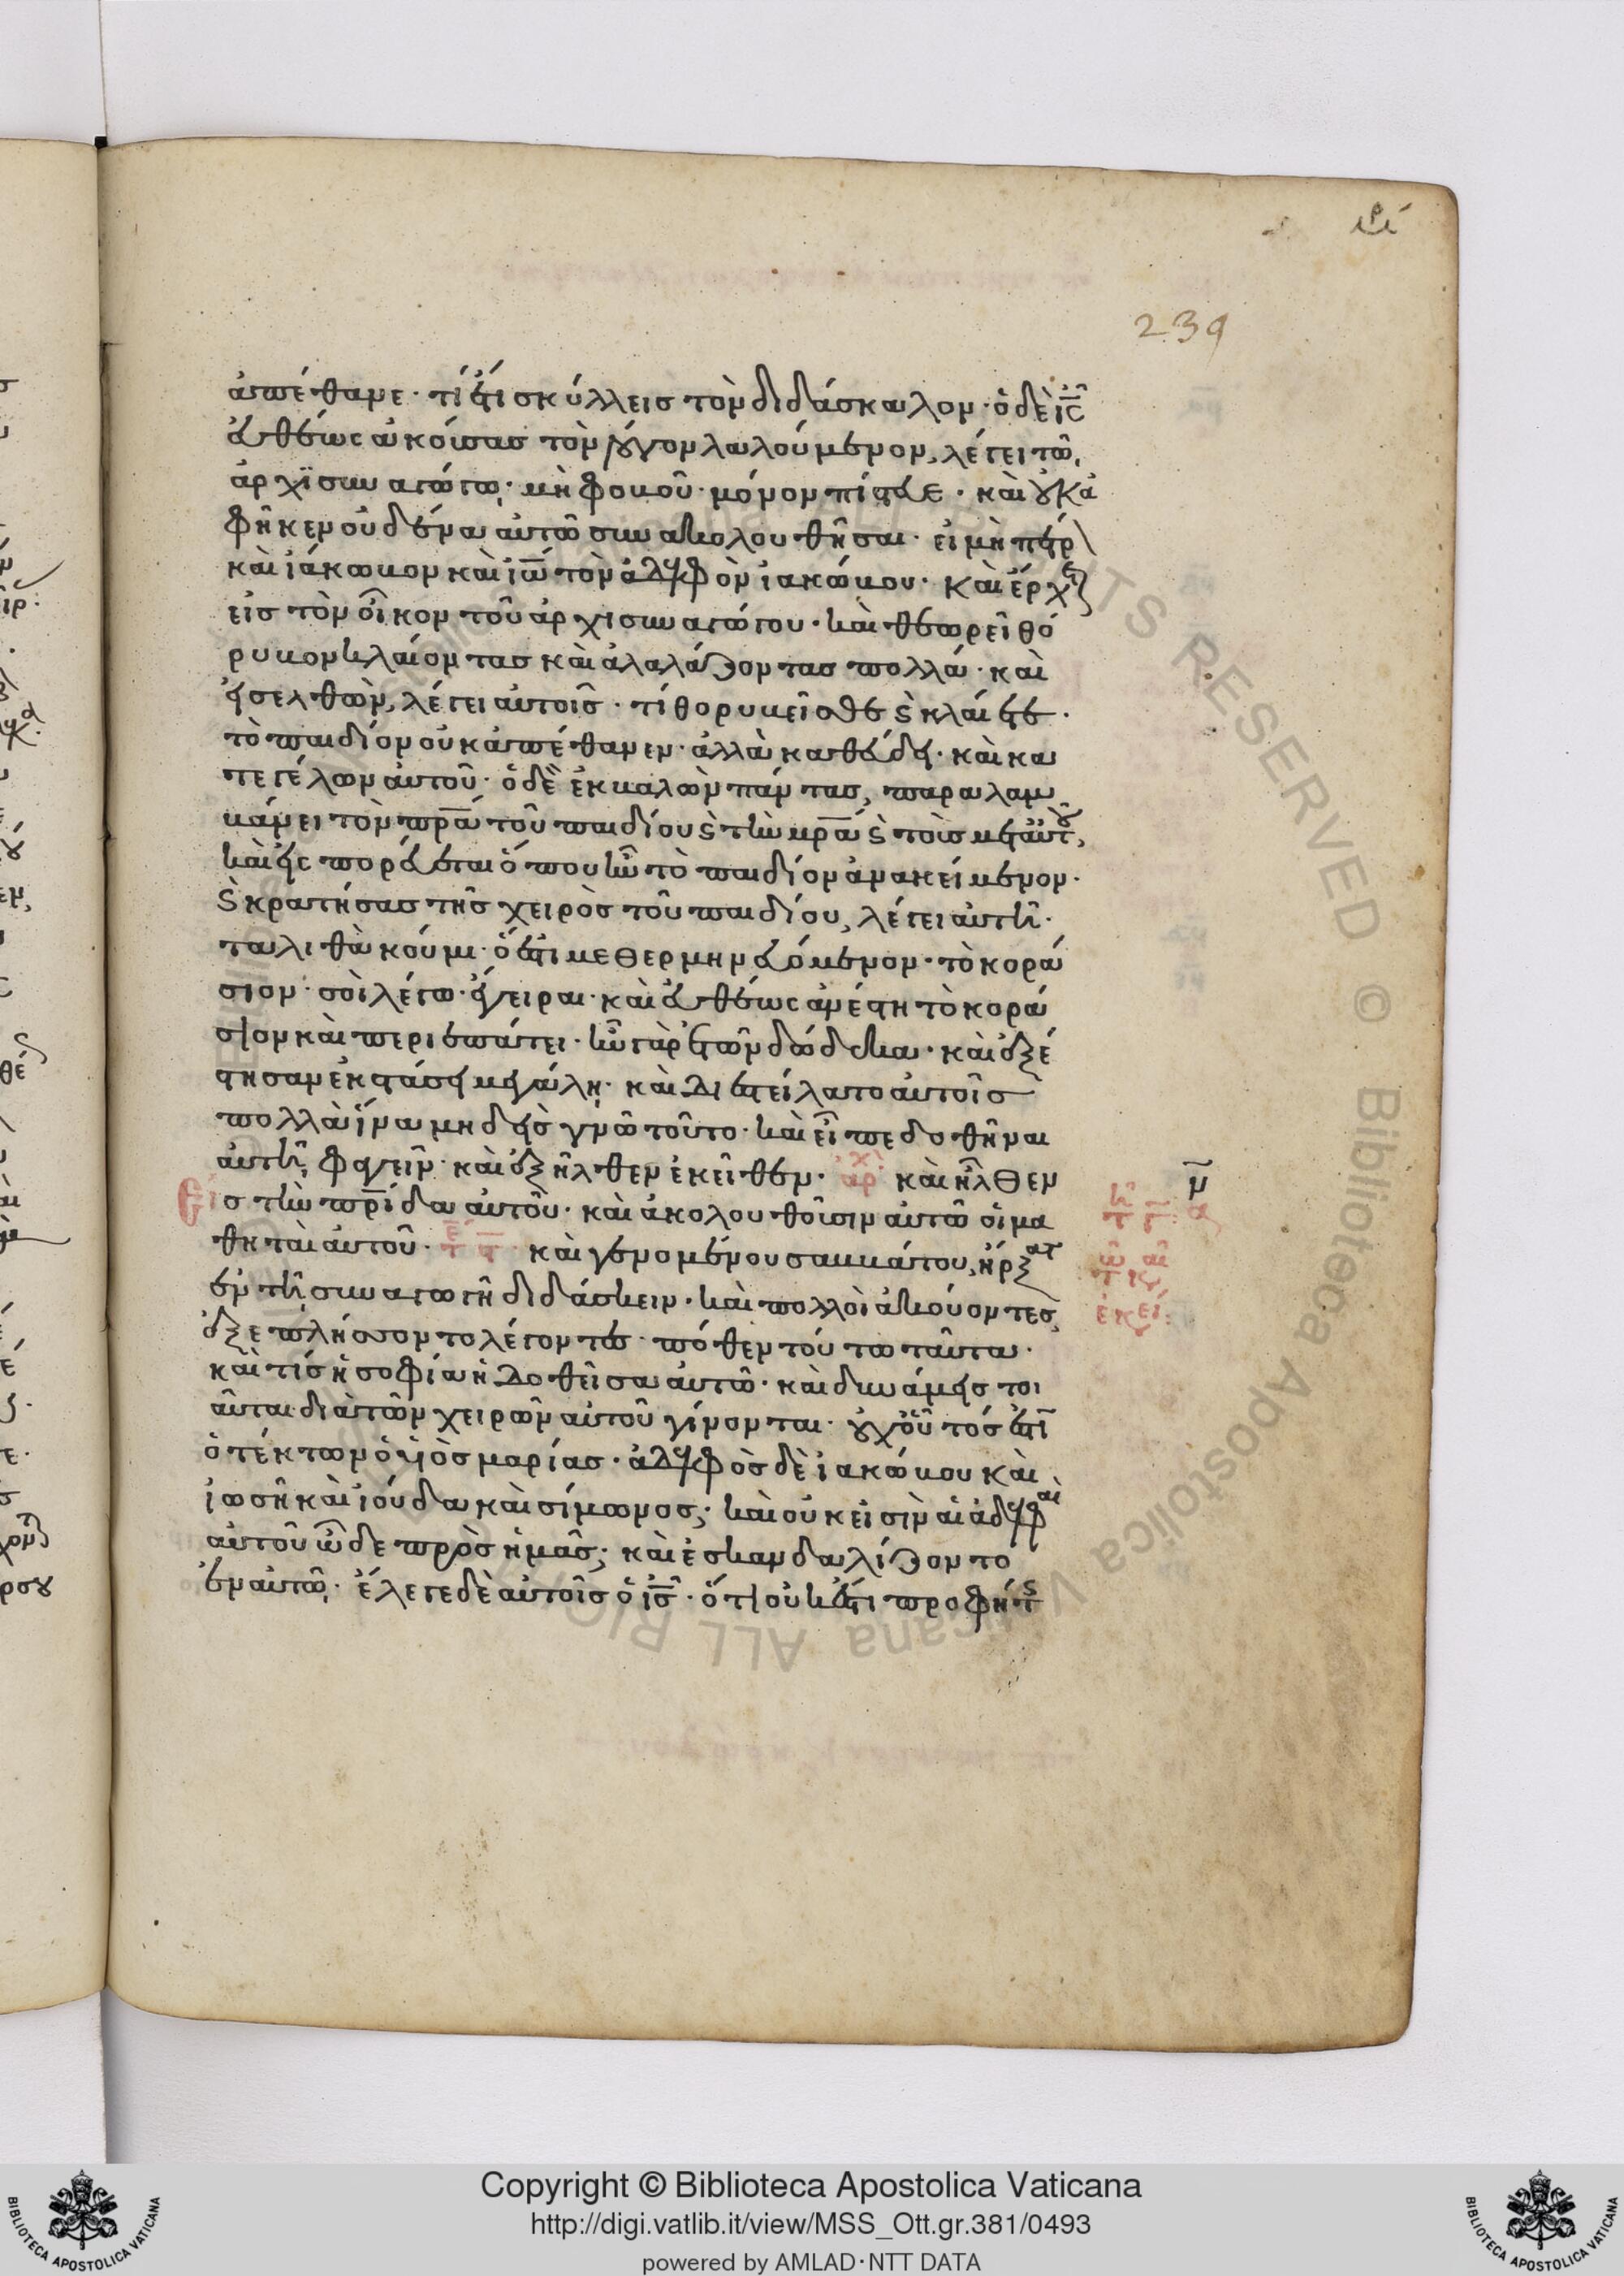 239
ἀπέθανε· τί ἔτι σκύλλεις τὸν διδάσκαλον· ὁ δὲ ἰς̅
εὐθέως ἀκούσας τὸν λόγον λαλούμενον, λέγει τῶ,
ἀρχϊσυναγώγω· μὴ φοβοῦ· μόνον πίστευε· καὶ οὐκ ἀ
φῆκεν οὐδένα αὐτῶ συνακολουθῆσαι· εἰ μὴ πέτρ
καὶ ἰάκωβον καὶ ἰω̅ τὸν ἀδελφὸν ἰακώβου· καὶ ἔρχε
εἰς τὸν οἶκον τοῦ ἀρχισυναγώγου· καὶ θεωρεῖ θό
ρυβον κλαίοντας καὶ ἀλαλάζοντας πολλά· καὶ
εἰσελθὼν, λέγει αὐτοῖς· τί θορυβεῖσθε ϗ κλαίετε·
τὸ παιδίον οὐκ ἀπέθανεν· ἀλλὰ καθεύδει· καὶ κα
τεγέλων αὐτοῦ· ὁ δὲ ἐκβαλὼν πάντας, παραλαμ
βάνει τὸν πρ̅α τοῦ παιδίου ϗ τὴν μρ̅α ϗ τοὺς μετ αὐτοῦ,
καὶ εἰσπορεύεται ὅπου ἦν τὸ παιδίον ἀνακείμενον·
ϗ κρατήσας τῆς χειρὸς τοῦ παιδίου, λέγει αὐτῆ·
ταλιθὰ κούμι· ὅ ἐστι μεθερμηνευόμενον· τὸ κορά
σιον· σοὶ λέγω· ἔγειραι· καὶ εὐθέως ἀνέστη τὸ κορά
σιον καὶ περιεπάτει· ἦν γὰρ ἐτῶν δώδεκα· καὶ ἐξέ
στησαν ἐκστάσει μεγάλη· καὶ διεστείλατο αὐτοῖς
πολλὰ ἵνα μηδεὶς γνῶ τοῦτο· καὶ εἶπε δοθῆναι
αὐτῆ, φαγεῖν· καὶ ἐξῆλθεν ἐκεῖθεν· ἀρχ καὶ ἦλθεν
εἰς τὴν πρ̅ίδα αὐτοῦ· καὶ ἀκολουθοῦσιν αὐτῶ οἱ μα
θηταὶ αὐτοῦ· καὶ γενομένου σαββάτου, ἤρξατ
ἐν τῆ συναγωγῆ διδάσκειν· καὶ πολλοὶ ἀκούοντες,
ἐξεπλήσσοντο λέγοντες· πόθεν τούτω ταῦτα·
καὶ τίς ἡ σοφία ἡ δοθεῖσα αὐτῶ· καὶ δυνάμεις τοι
αῦται διὰ τῶν χειρῶν αὐτοῦ γίνονται· οὐχ οὗτός ἐστι
ὁ τέκτων ὁ υἱὸς μαρίας· ἀδελφὸς δὲ ἰακώβου καὶ
ἰωσῆ καὶ ἰούδα καὶ σίμωνος; καὶ οὐκ εἰσὶν αἱ ἀδελφαὶ
αὐτοῦ ὧδε πρὸς ἡμᾶς; καὶ ἐσκανδαλίζοντο
ἐν αὐτῶ· ἔλεγε δὲ αὐτοῖς ὁ ἰς̅· ὅτι οὐκ ἔστι προφήτης
Copyright © Biblioteca Apostolica Vaticana
http://digi.vatlib.it/view/MSS_Ott.gr.381/0493
powered by AMLAD·NTT DATA
BIBLIOTECA APOSTOLICA VATICANA
BIBLIOTECA APOSTOLICA VATICANA